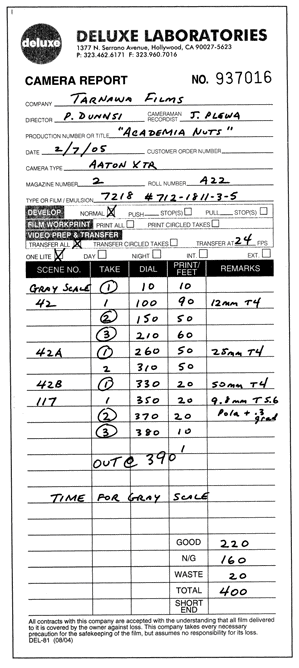 deluxe
DELUXE LABORATORIES
1377 N. Serrano Avenue, Hollywood, CA 90027-5623
P: 323.462.6171 F: 323.960.7016
CAMERA REPORT NO. 937016
COMPANY TARNAWA FILMS
DIRECTOR P. DUNNSI CAMERAMAN RECORDIST J. PLEWA
PRODUCTION NUMBER OR TITLE "ACADEMIA NUTS"
DATE 2/7/05 CUSTOMER ORDER NUMBER
CAMERA TYPE AATON XTR
MAGAZINE NUMBER 2 ROLL NUMBER A22
TYPE OF FILM / EMULSION 7218 #712-1811-3-5
DEVELOP NORMAL X PUSH STOP(S) PULL STOP(S)
FILM WORKPRINT PRINT ALL PRINT CIRCLED TAKES
VIDEO PREP & TRANSFER
TRANSFER ALL X TRANSFER CIRCLED TAKES TRANSFER AT 24 FPS
ONE LITE X DAY NIGHT INT EXT
SCENE NO. TAKE DIAL PRINT/FEET REMARKS
GRAY SCALE 1 10 10
42 1 100 90 12mm T4
2 150 50
3 210 60
42A 1 260 50 25mm T4
2 310 50
42B 1 330 20 50mm T4
117 1 350 20 9.8mm T5.6
2 370 20 Pola + .3 grad
3 380 10
OUT @ 390'
TIME FOR GRAY SCALE
GOOD 220
N/G 160
WASTE 20
TOTAL 400
SHORT END
All contracts with this company are accepted with the understanding that all film delivered
to it is covered by the owner against loss. This company takes every necessary
precaution for the safekeeping of the film, but assumes no responsibility for its loss.
DEL-81 (08/04)